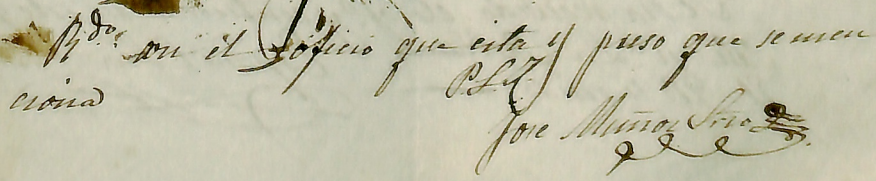 Rdo. con el oficio que cita y preso que se men
ciona
Jose Muñoz Srio